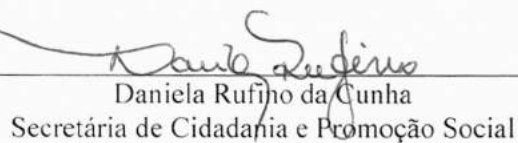 Daniela Rufino da Cunha
Secretária de Cidadania e Promoção Social